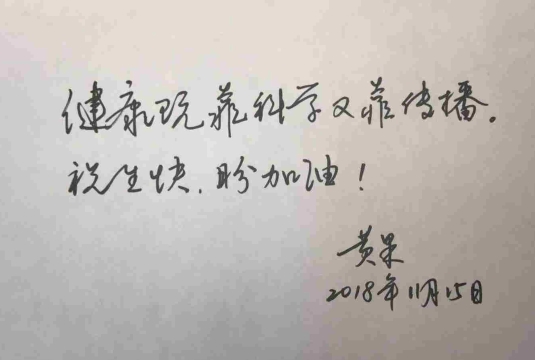 健康既靠科学又靠传播.
祝生快.盼加油!
黄果
2018年11月15日